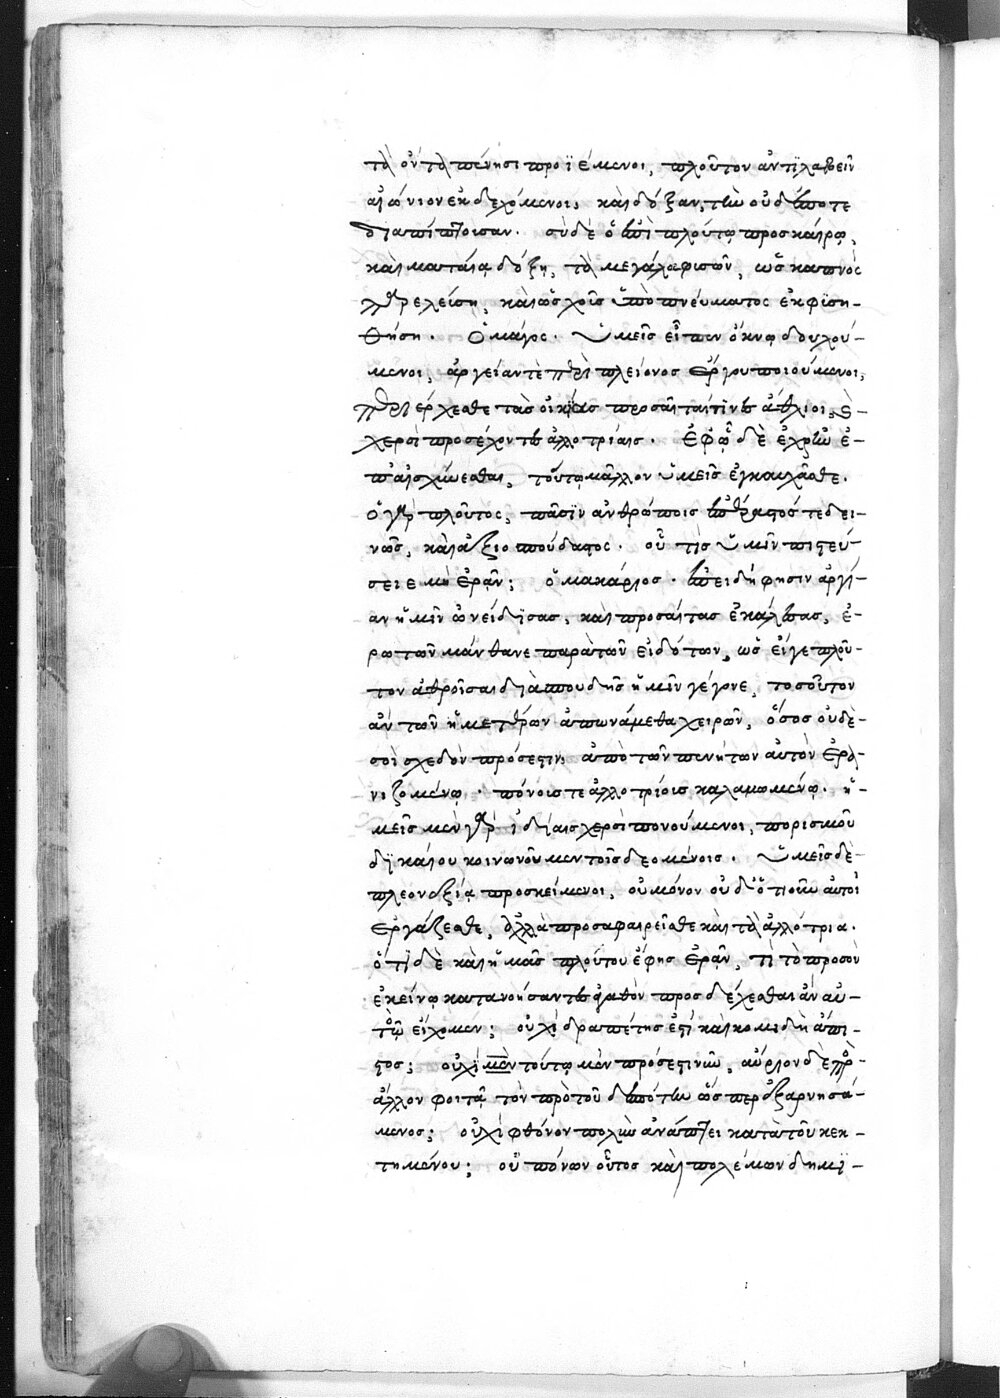 τὰ ὄντα πένησι προϊέμενοι, πλοῦτον ἀντιλαβεῖν
αἰώνιον ἐκδεχόμενοι, καὶ δόξαν, τὴν οὐδέποτε
διαπίπτουσαν. σὺ δὲ ὁ ἐπὶ πλούτῳ προσκαίρῳ,
καὶ ματαίᾳ δόξῃ, τὰ μεγάλα φυσῶν, ὡς καπνὸς
παρελεύσῃ, καὶ ὡς χοῦς ὑπὸ πνεύματος ἐκφυση-
θήσῃ. Ὁ μάγος. Ὑμεῖς εἶπεν ὀκνῳδουχού-
μενοι, ἀργείαν τὲ περὶ πλείονος ἔργου ποιούμενοι,
περιέρχεσθε τὰς οἰκίας προσαῖται τινὲς ἄθλιοι,
χερσὶ προσέχοντες ἀλλοτρίαις. Ἐφ' ᾧ δὲ ἐχρῆν ἐ-
παισχύνεσθαι, τούτῳ μᾶλλον ὑμεῖς ἐγκαυχᾶσθε.
Ὁ γὰρ πλοῦτος, πᾶσιν ἀνθρώποις ἐπέραστός τε δει-
νῶς, καὶ ἀξιοσπούδαστος. οὗ τίς ὑμῖν πιστεύ-
σειε μὴ ἐρᾶν; ὁ μακάριος. ἐπειδή φησιν ἀργί-
αν ἡμῖν ὠνείδισας, καὶ προσαίτας ἐκάλεσας, ἐ-
ρωτῶν μάνθανε παρὰ τῶν εἰδότων, ὡς εἴγε πλοῦ-
τον ἀθροῖσαι διὰ σπουδῆς ἡμῖν γέγονε, τοσοῦτον
ἂν τῶν ἡμετέρων ἀπωνάμεθα χειρῶν, ὅσος οὐδέ-
σοὶ σχεδὸν πρόσεστιν, ἀπὸ τῶν πενήτων αὐτὸν ἐρα-
νιζομένῳ. πόνοις τε ἀλλοτρίοις καλαμωμένῳ. ἡ-
μεῖς μὲν γὰρ ἰδίαις χερσὶ πονούμενοι, πορισμοῦ
δικαίου κοινωνοῦμεν τοῖς δεομένοις. Ὑμεῖς δὲ
πλεονεξίᾳ προσκείμενοι, οὐ μόνον οὐδ' ὁτιοῦν αὐτοὶ
ἐργάζεσθε, ἀλλὰ προσαφαιρεῖσθε καὶ τὰ ἀλλότρια.
ὅτι δὲ καὶ ἡμᾶς πλούτου ἔφης ἐρᾶν, τί τὸ προσὸν
ἐκείνῳ κατανοήσαντες ἀγαθὸν προσδέχεσθαι ἂν αὐ-
τῷ εἴχομεν; οὐχὶ δραπέτης ἐστὶ καὶ κομιδῆ ἄπι-
στος; οὐχὶ μὲν τούτῳ μὲν πρόσεστι νῦν, αὔριον δὲ πρὸς
ἄλλον φοιτᾷ τὸν πρὸ τοῦ δεσπότην ὥσπερ ἐξαρνησά-
μενος; οὐχὶ φθόνον πολὺν ἀνάπτει κατὰ τοῦ κεκ-
τημένου; οὐ πόνων οὗτος καὶ πολέμων δημι-